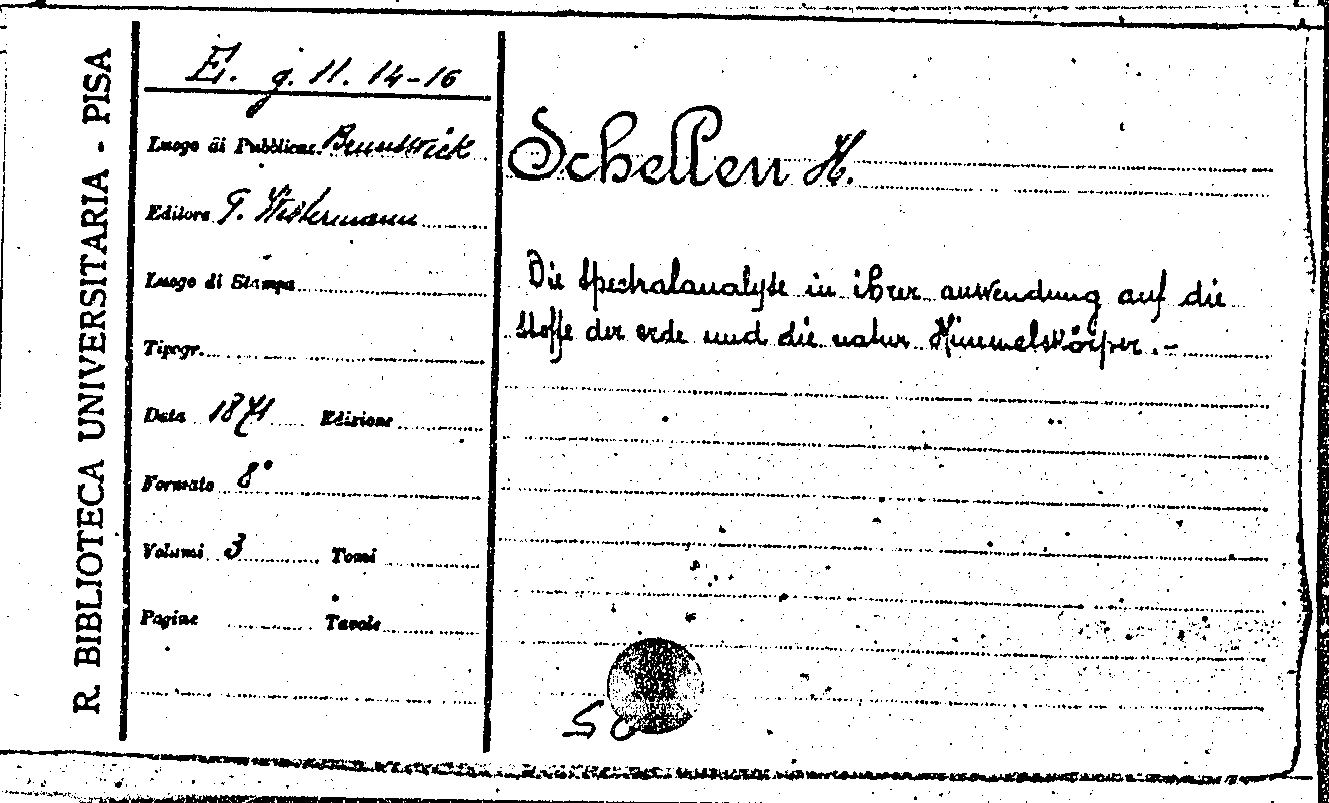 R. BIBLIOTECA UNIVERSITARIA - PISA
E. g. 11. 14-16
Luogo di Pubblicaz. Brunswick
Editore G. Westermann
Luogo di Stampa
Tipogr.
Data 1871 Edizione
Formato 8°
Volumi 3 Tomi
Pagine Tavole
Schellen H.
Die Spectralanalyse in ihrer anwendung auf die
Stoffe der erde und die natur Himmelskörper.-